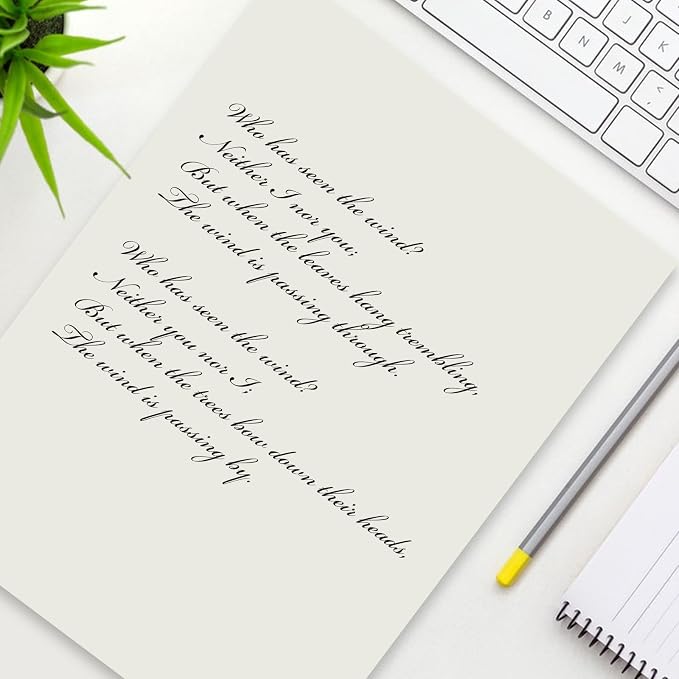 J K
B N M < ,
Who has seen the wind?
Neither I nor you;
But when the leaves hang trembling,
The wind is passing through.
Who has seen the wind?
Neither you nor I;
But when the trees bow down their heads,
The wind is passing by.